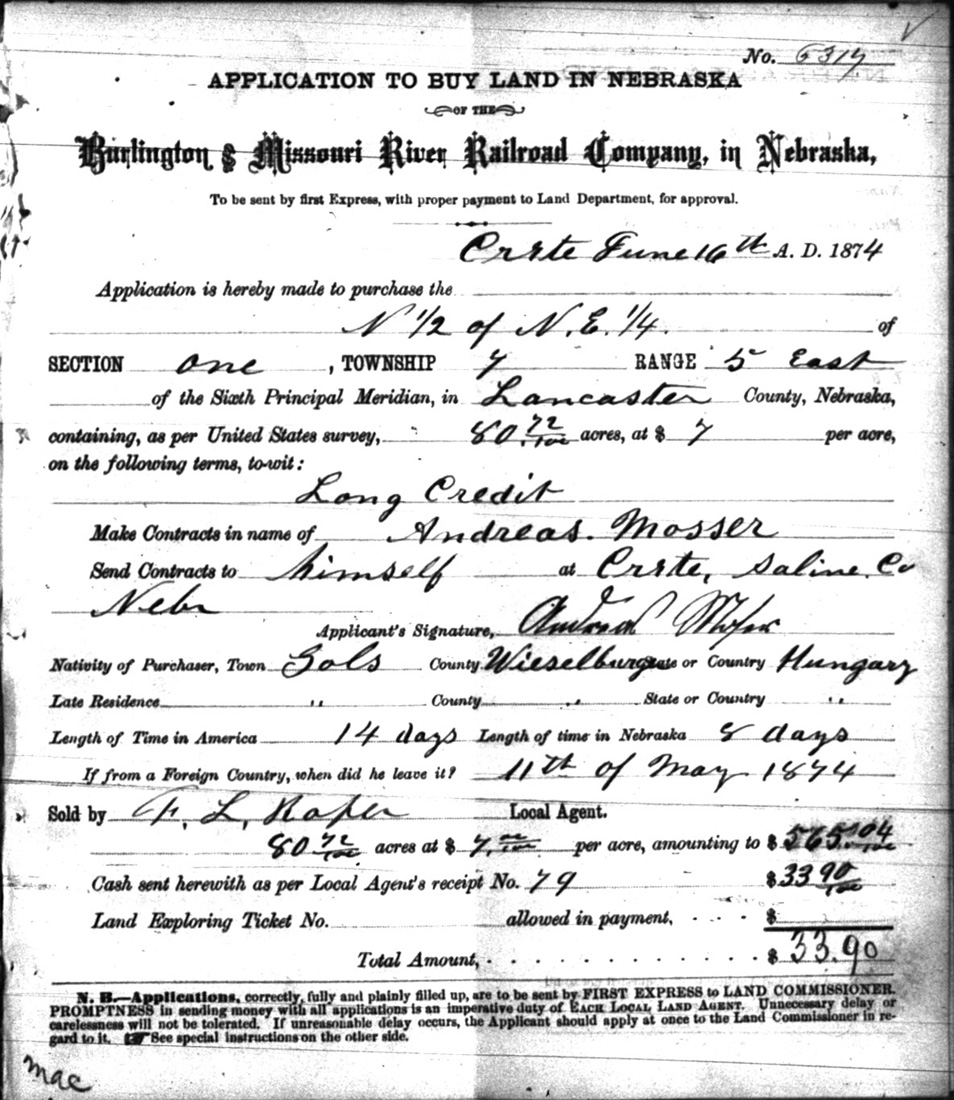 No. 6317
APPLICATION TO BUY LAND IN NEBRASKA
OF THE
Burlington & Missouri River Railroad Company, in Nebraska,
To be sent by first Express, with proper payment to Land Department, for approval.
Crete June 16th A. D. 1874
Application is hereby made to purchase the
N 1/2 of N.E. 1/4. of
SECTION one, TOWNSHIP 7 RANGE 5 East
of the Sixth Principal Meridian, in Lancaster County, Nebraska,
containing, as per United States survey, 80 72/100 acres, at $ 7 per acre,
on the following terms, to-wit:
Long Credit
Make Contracts in name of Andreas. Mosser
Send Contracts to himself at Crete, Saline. Co
Nebr
Applicant's Signature, Andreas Moser
Nativity of Purchaser, Town Gols County Wieselburg State or Country Hungary
Late Residence " County " State or Country "
Length of Time in America 14 days Length of time in Nebraska 8 days
If from a Foreign Country, when did he leave it? 11th of May 1874
Sold by F. L. Roper Local Agent.
80 72/100 acres at $ 7.00/100 per acre, amounting to $ 565.04
Cash sent herewith as per Local Agent's receipt No. 79 $33 90/100
Land Exploring Ticket No. allowed in payment, . . . $
Total Amount, . . . . . . . . . . . $ 33.90
N. B.—Applications, correctly, fully and plainly filled up, are to be sent by FIRST EXPRESS to LAND COMMISSIONER.
PROMPTNESS in sending money with all applications is an imperative duty of EACH LOCAL LAND AGENT. Unnecessary delay or
carelessness will not be tolerated. If unreasonable delay occurs, the Applicant should apply at once to the Land Commissioner in re-
gard to it. ☞ See special instructions on the other side.
mac